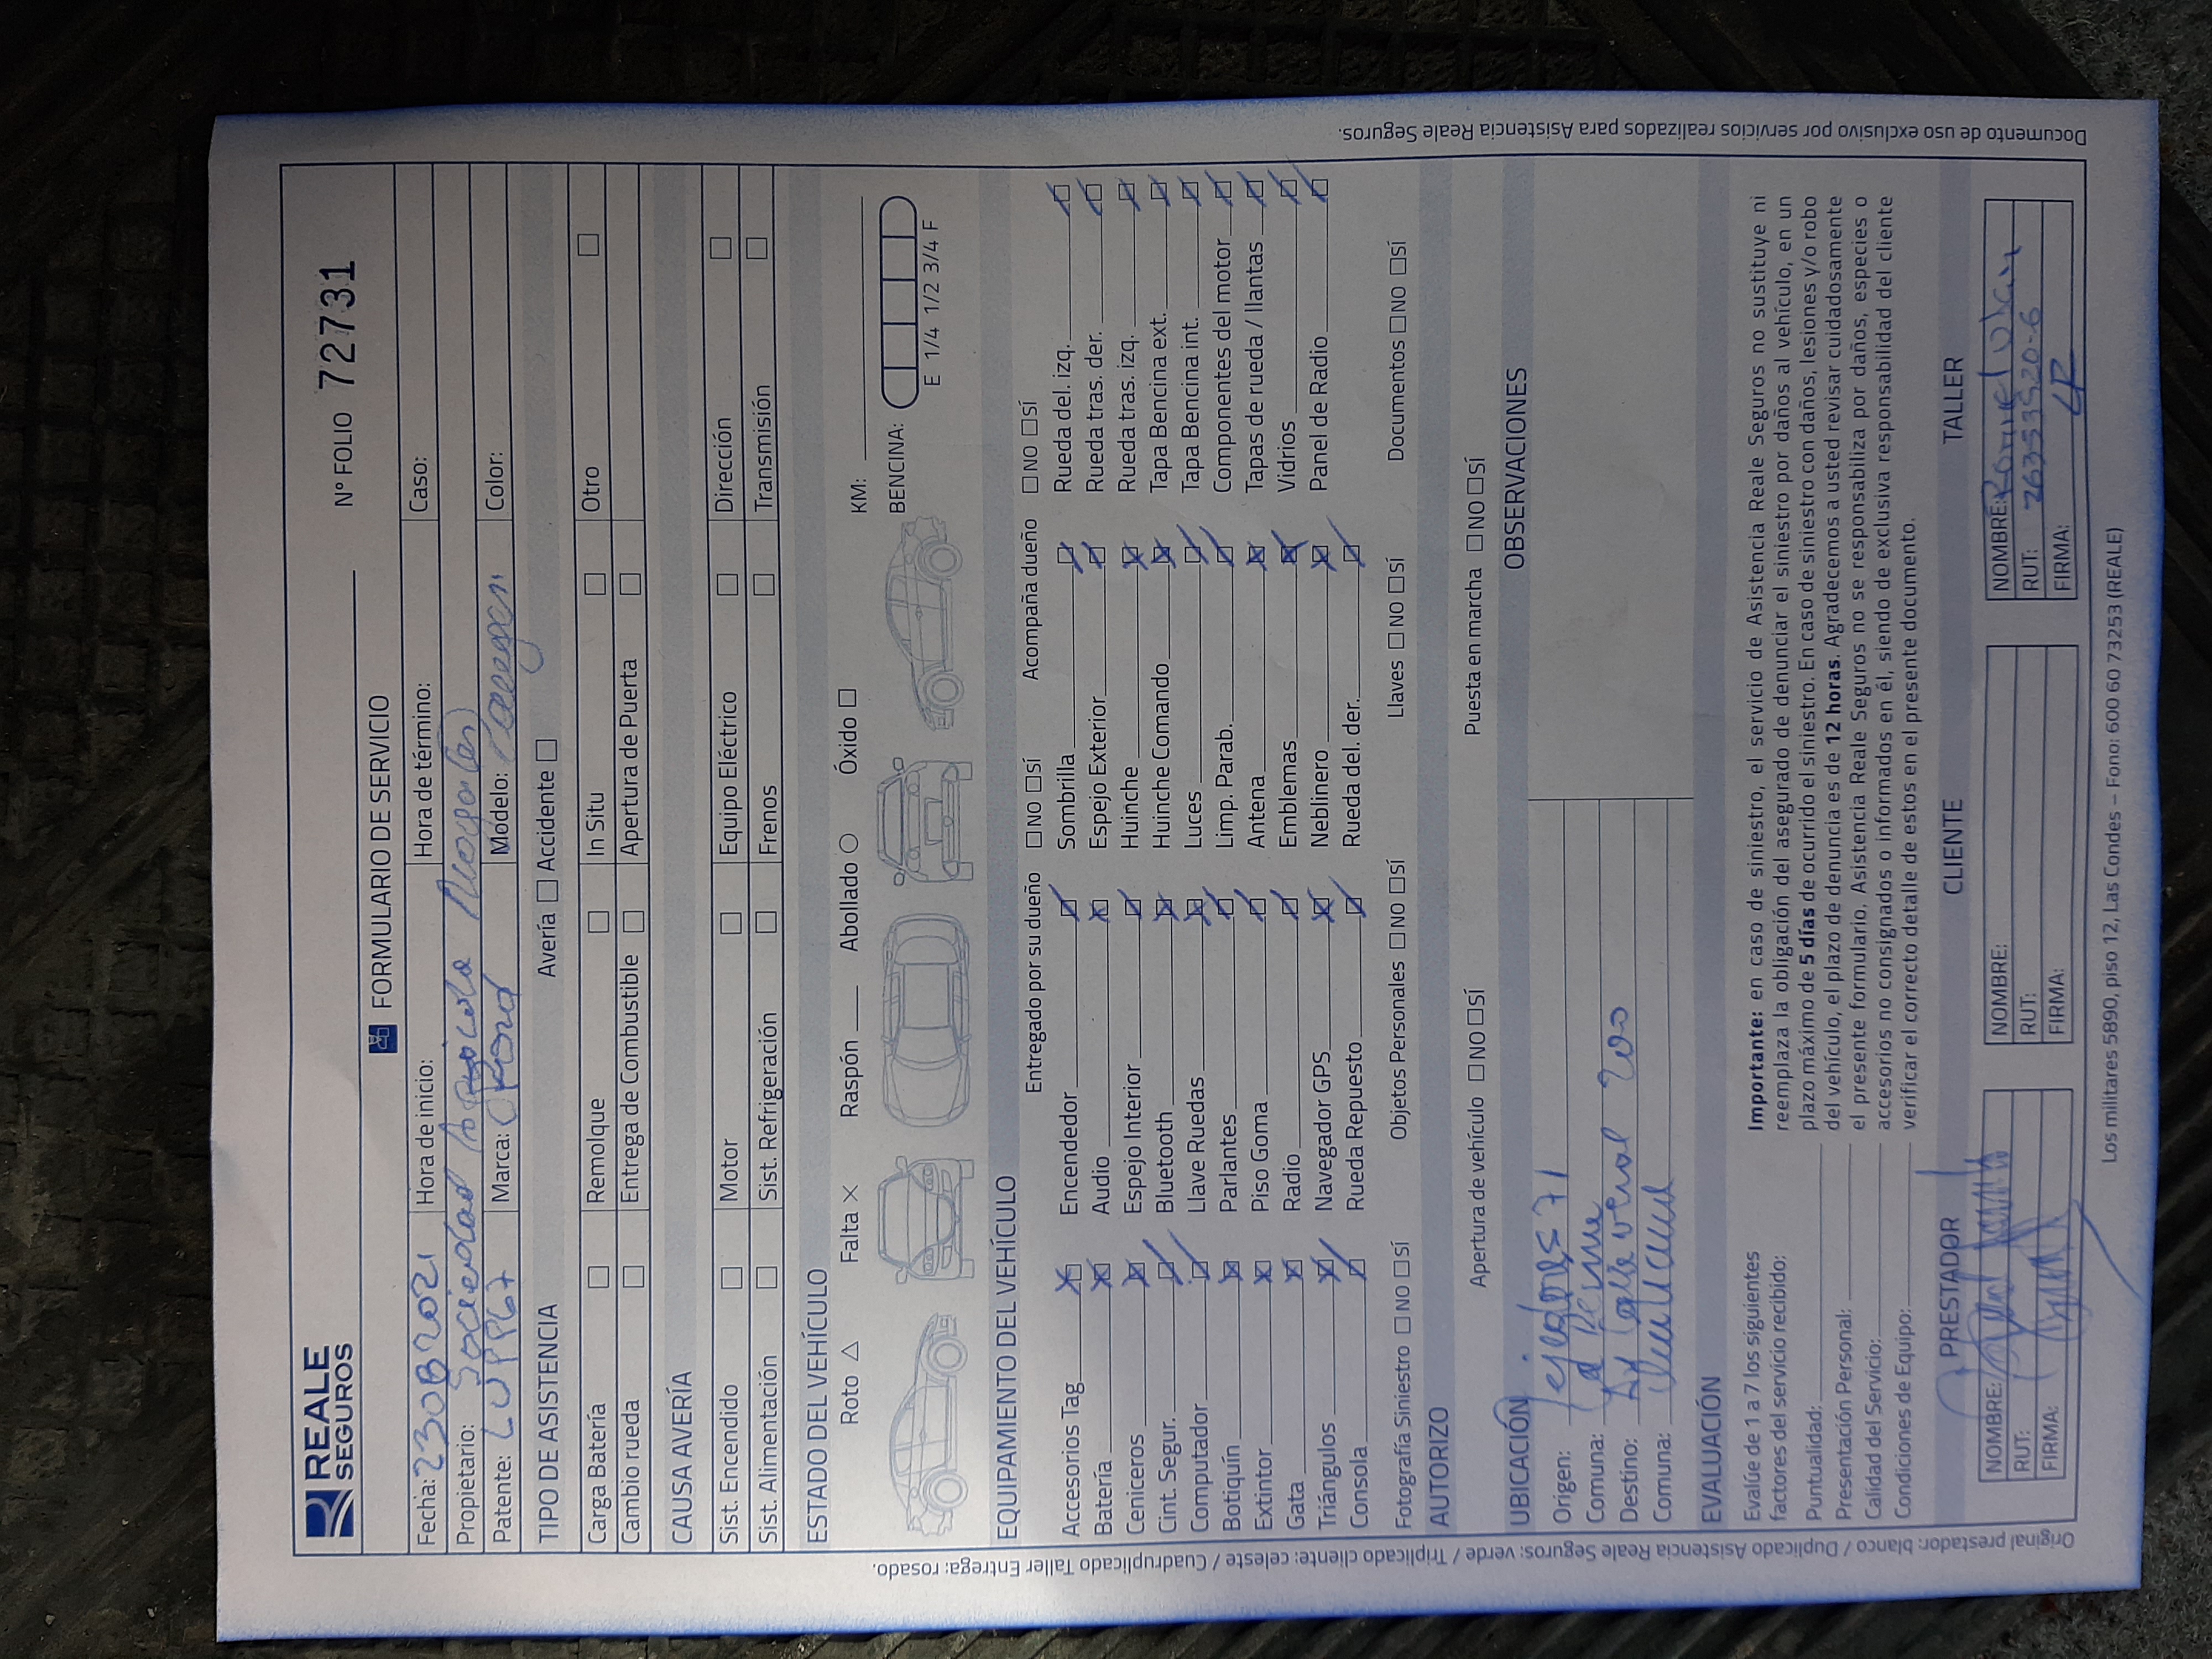 REALE
SEGUROS
N° FOLIO 72731
FORMULARIO DE SERVICIO
Fecha: 23082021 Hora de inicio: Hora de término: Caso:
Propietario: Sociedad Agricola
Patente: Marca: Modelo: Color:
TIPO DE ASISTENCIA Avería □ Accidente □
Carga Batería □ Remolque □ In Situ □ Otro □
Cambio rueda □ Entrega de Combustible □ Apertura de Puerta □
CAUSA AVERÍA
Sist. Encendido □ Motor □ Equipo Eléctrico □ Dirección □
Sist. Alimentación □ Sist. Refrigeración □ Frenos □ Transmisión □
ESTADO DEL VEHÍCULO
Roto △ Falta × Raspón ___ Abollado ○ Óxido □ KM:
BENCINA:
E 1/4 1/2 3/4 F
EQUIPAMIENTO DEL VEHÍCULO Entregado por su dueño □ NO □ SÍ Acompaña dueño □ NO □ SÍ
Accesorios Tag Encendedor Sombrilla Rueda del. izq.
Batería Audio Espejo Exterior Rueda tras. der.
Ceniceros Espejo Interior Huinche Rueda tras. izq.
Cint. Segur. Bluetooth Huinche Comando Tapa Bencina ext.
Computador Llave Ruedas Luces Tapa Bencina int.
Botiquín Parlantes Limp. Parab. Componentes del motor
Extintor Piso Goma Antena Tapas de rueda / llantas
Gata Radio Emblemas Vidrios
Triángulos Navegador GPS Neblinero Panel de Radio
Consola Rueda Repuesto Rueda del. der.
Fotografía Siniestro □ NO □ SÍ Objetos Personales □ NO □ SÍ Llaves □ NO □ SÍ Documentos □ NO □ SÍ
AUTORIZO
Apertura de vehículo □ NO □ SÍ Puesta en marcha □ NO □ SÍ
UBICACIÓN OBSERVACIONES
Origen: Tejedores 71
Comuna: La Reina
Destino:
Comuna:
EVALUACIÓN
Evalúe de 1 a 7 los siguientes
factores del servicio recibido:
Puntualidad:
Presentación Personal:
Calidad del Servicio:
Condiciones de Equipo:
Importante: en caso de siniestro, el servicio de Asistencia Reale Seguros no sustituye ni
reemplaza la obligación del asegurado de denunciar el siniestro por daños al vehículo, en un
plazo máximo de 5 días de ocurrido el siniestro. En caso de siniestro con daños, lesiones y/o robo
del vehículo, el plazo de denuncia es de 12 horas. Agradecemos a usted revisar cuidadosamente
el presente formulario. Asistencia Reale Seguros no se responsabiliza por daños, especies o
accesorios no consignados o informados en él, siendo de exclusiva responsabilidad del cliente
verificar el correcto detalle de estos en el presente documento.
PRESTADOR CLIENTE TALLER
NOMBRE: NOMBRE: NOMBRE:
RUT: RUT: RUT: 26353520-6
FIRMA: FIRMA: FIRMA:
Los militares 5890, piso 12, Las Condes – Fono: 600 60 73253 (REALE)
Original prestador: blanco / Duplicado Asistencia Reale Seguros: verde / Triplicado cliente: celeste / Cuadruplicado Taller Entrega: rosado.
Documento de uso exclusivo por servicios realizados para Asistencia Reale Seguros.